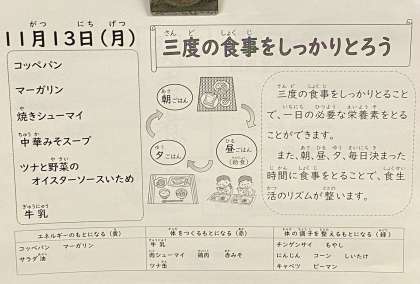 11月13日(月)
コッペパン
マーガリン
焼きシューマイ
中華みそスープ
ツナと野菜の
オイスターソースいため
牛乳
三度の食事をしっかりとろう
朝ごはん
昼ごはん
(給食)
夕ごはん
三度の食事をしっかりとること
で、一日の必要な栄養素をとる
ことができます。
また、朝、昼、夕、毎日決まった
時間に食事をとることで、食生
活のリズムが整います。
エネルギーのもとになる(黄)
コッペパン マーガリン
サラダ油
体をつくるもとになる(赤)
牛乳
肉シューマイ 鶏肉 赤みそ
ツナ缶
体の調子を整えるもとになる(緑)
チンゲンサイ もやし
にんじん コーン しいたけ
キャベツ ピーマン